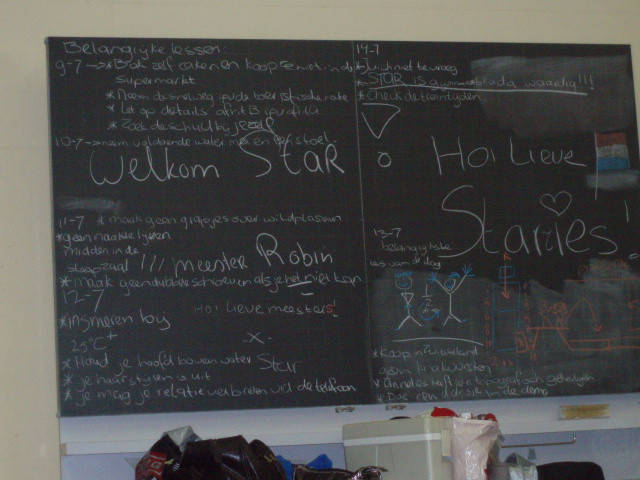 Belangrijke lessen:
9-7 → * Boek zelf zaken en koop ze niet in de
supermarkt
* Neem de snelweg ipv de toeristische route
* Let op details afrit B ipv afrit
* Zoek de schuld bij jezelf
10-7 → neem voldoende water mee en een stoel.
Welkom Star
11-7 * maak geen grapjes over wildplassen
* geen naakte lijven
midden in de
slaapzaal !!! meester Robin
* maak geen dubbele schroeven als je het niet kan
12-7
* insmeren bij
25°C+
Hoi lieve meesters!
-x-
Star
* Houd je hoofd boven water
* je haar stijlen is uit
* je mag je relatie verbreken via de telefoon
14-7
* STAR is waardig!!!
* Check de treintijden
Hoi Lieve
Starries!
13-7
belangrijkste
les van de dag
* Koop in Duitsland
geen
* Doe een in de demo